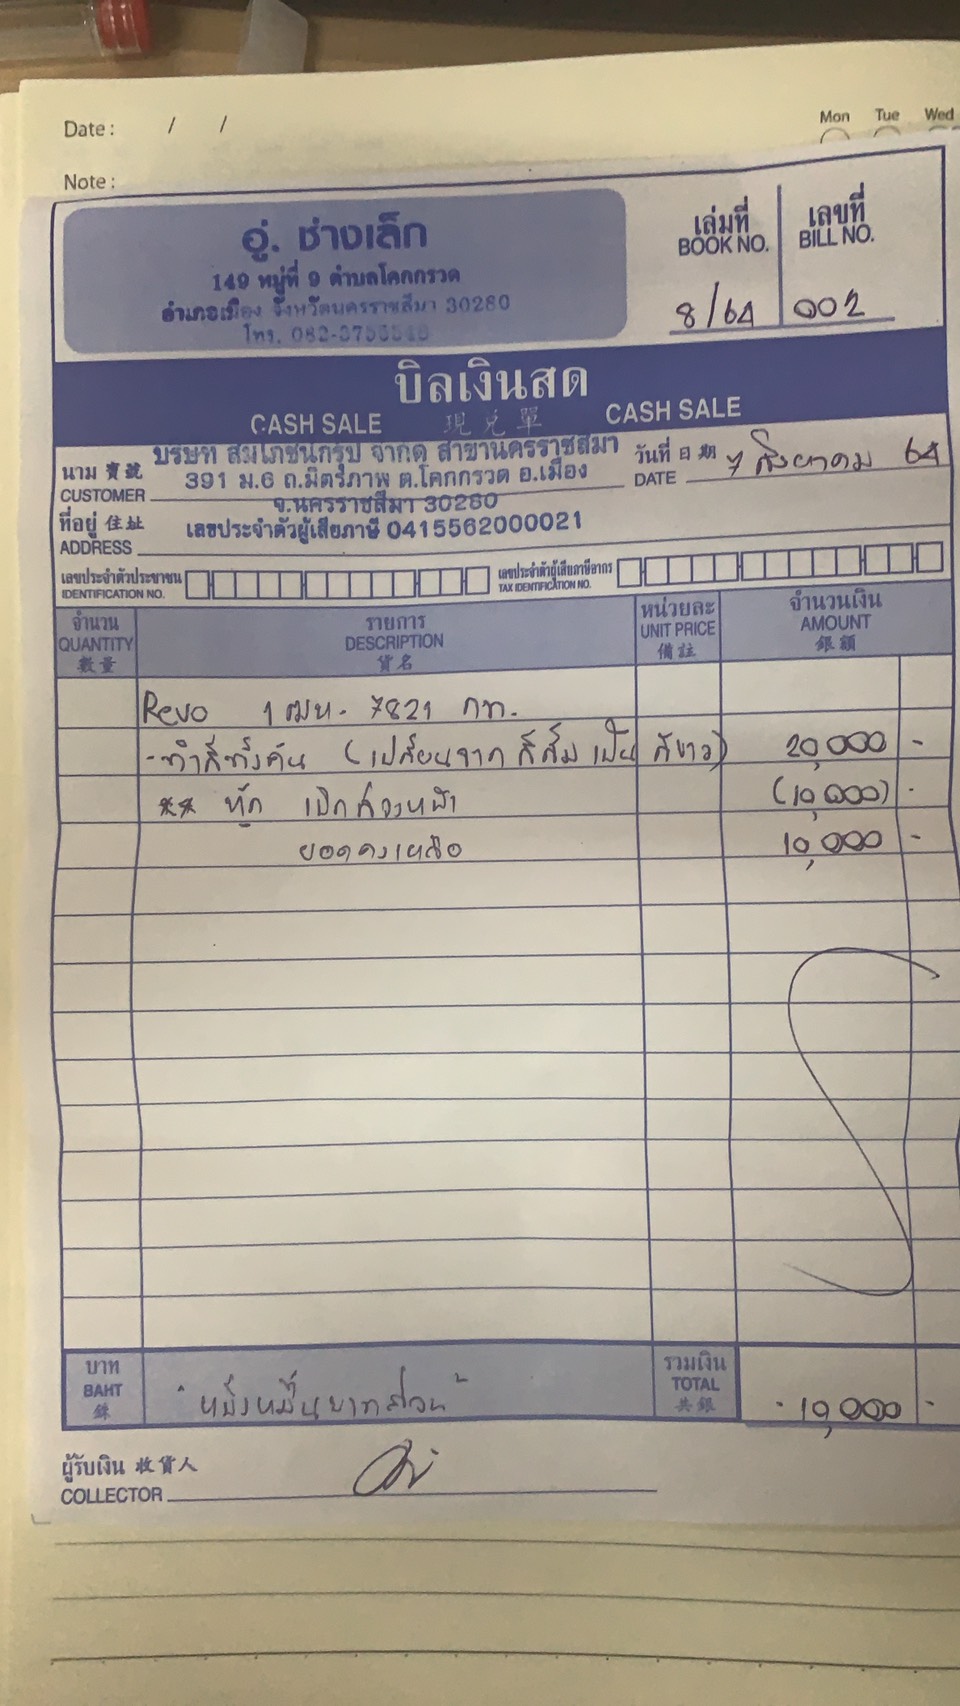 Date : / /
Mon Tue Wed
Note :
อู่. ช่างเล็ก
149 หมู่ที่ 9 ตำบลโคกกรวด
อำเภอเมือง จังหวัดนครราชสีมา 30280
โทร.
เล่มที่
BOOK NO.
8/64
เลขที่
BILL NO.
002
บิลเงินสด
CASH SALE 現兌單 CASH SALE
นาม 寶號
CUSTOMER
บริษัท สมโภชน์กรุป จำกัด สาขานครราชสีมา
391 ม.6 ถ.มิตรภาพ ต.โคกกรวด อ.เมือง
จ.นครราชสีมา 30280
วันที่ 日期 7 สิงหาคม 64
DATE
ที่อยู่ 住址
ADDRESS
เลขประจำตัวผู้เสียภาษี 0415562000021
เลขประจำตัวประชาชน
IDENTIFICATION NO.
เลขประจำตัวผู้เสียภาษีอากร
TAX IDENTIFICATION NO.
จำนวน
QUANTITY
數量
รายการ
DESCRIPTION
貨名
หน่วยละ
UNIT PRICE
備註
จำนวนเงิน
AMOUNT
銀額
Revo 1 ฒห. 7821 กท.
-ทำสีทั้งคัน (เปลี่ยนจาก สีส้ม เป็น สีขาว) 20,000 -
** หัก เบิกล่วงหน้า (10,000) -
ยอดคงเหลือ 10,000 -
บาท
BAHT
銖
หนึ่งหมื่นบาทถ้วน
รวมเงิน
TOTAL
共銀
10,000 -
ผู้รับเงิน 收貨人
COLLECTOR